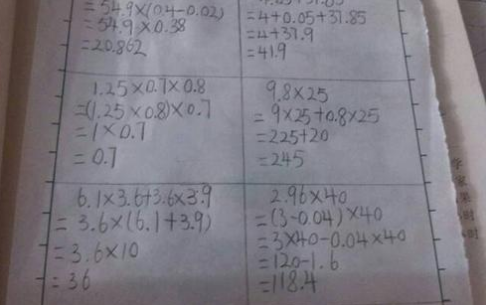 =54.9×(0.4-0.02)
=54.9×0.38
=20.862
=4+0.05+37.85
=4+37.9
=41.9
1.25×0.7×0.8
=(1.25×0.8)×0.7
=1×0.7
=0.7
9.8×25
=9×25+0.8×25
=225+20
=245
6.1×3.6+3.6×3.9
=3.6×(6.1+3.9)
=3.6×10
=36
2.96×40
=(3-0.04)×40
=3×40-0.04×40
=120-1.6
=118.4